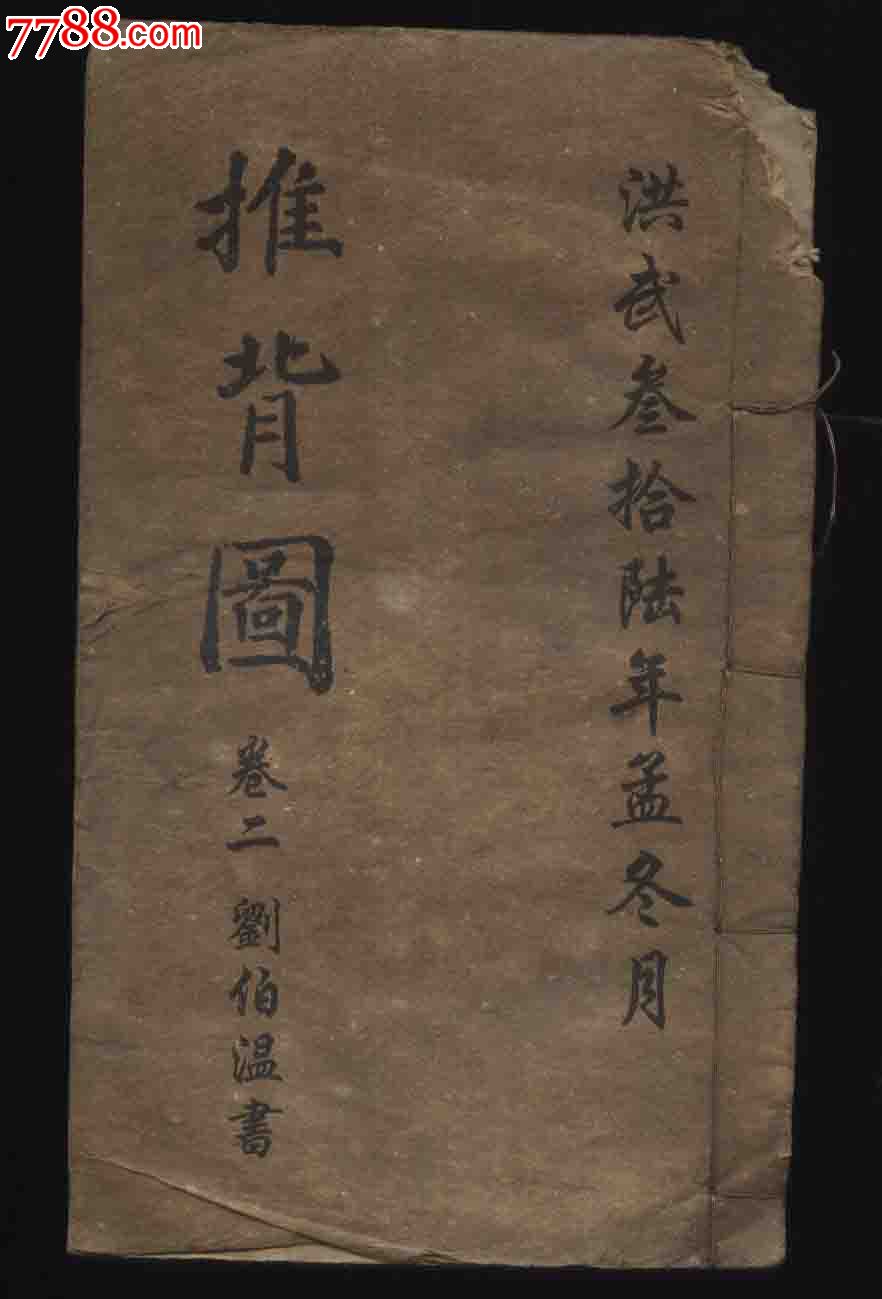 7788.com
洪武叄拾陸年孟冬月
推背圖 卷二 劉伯温書